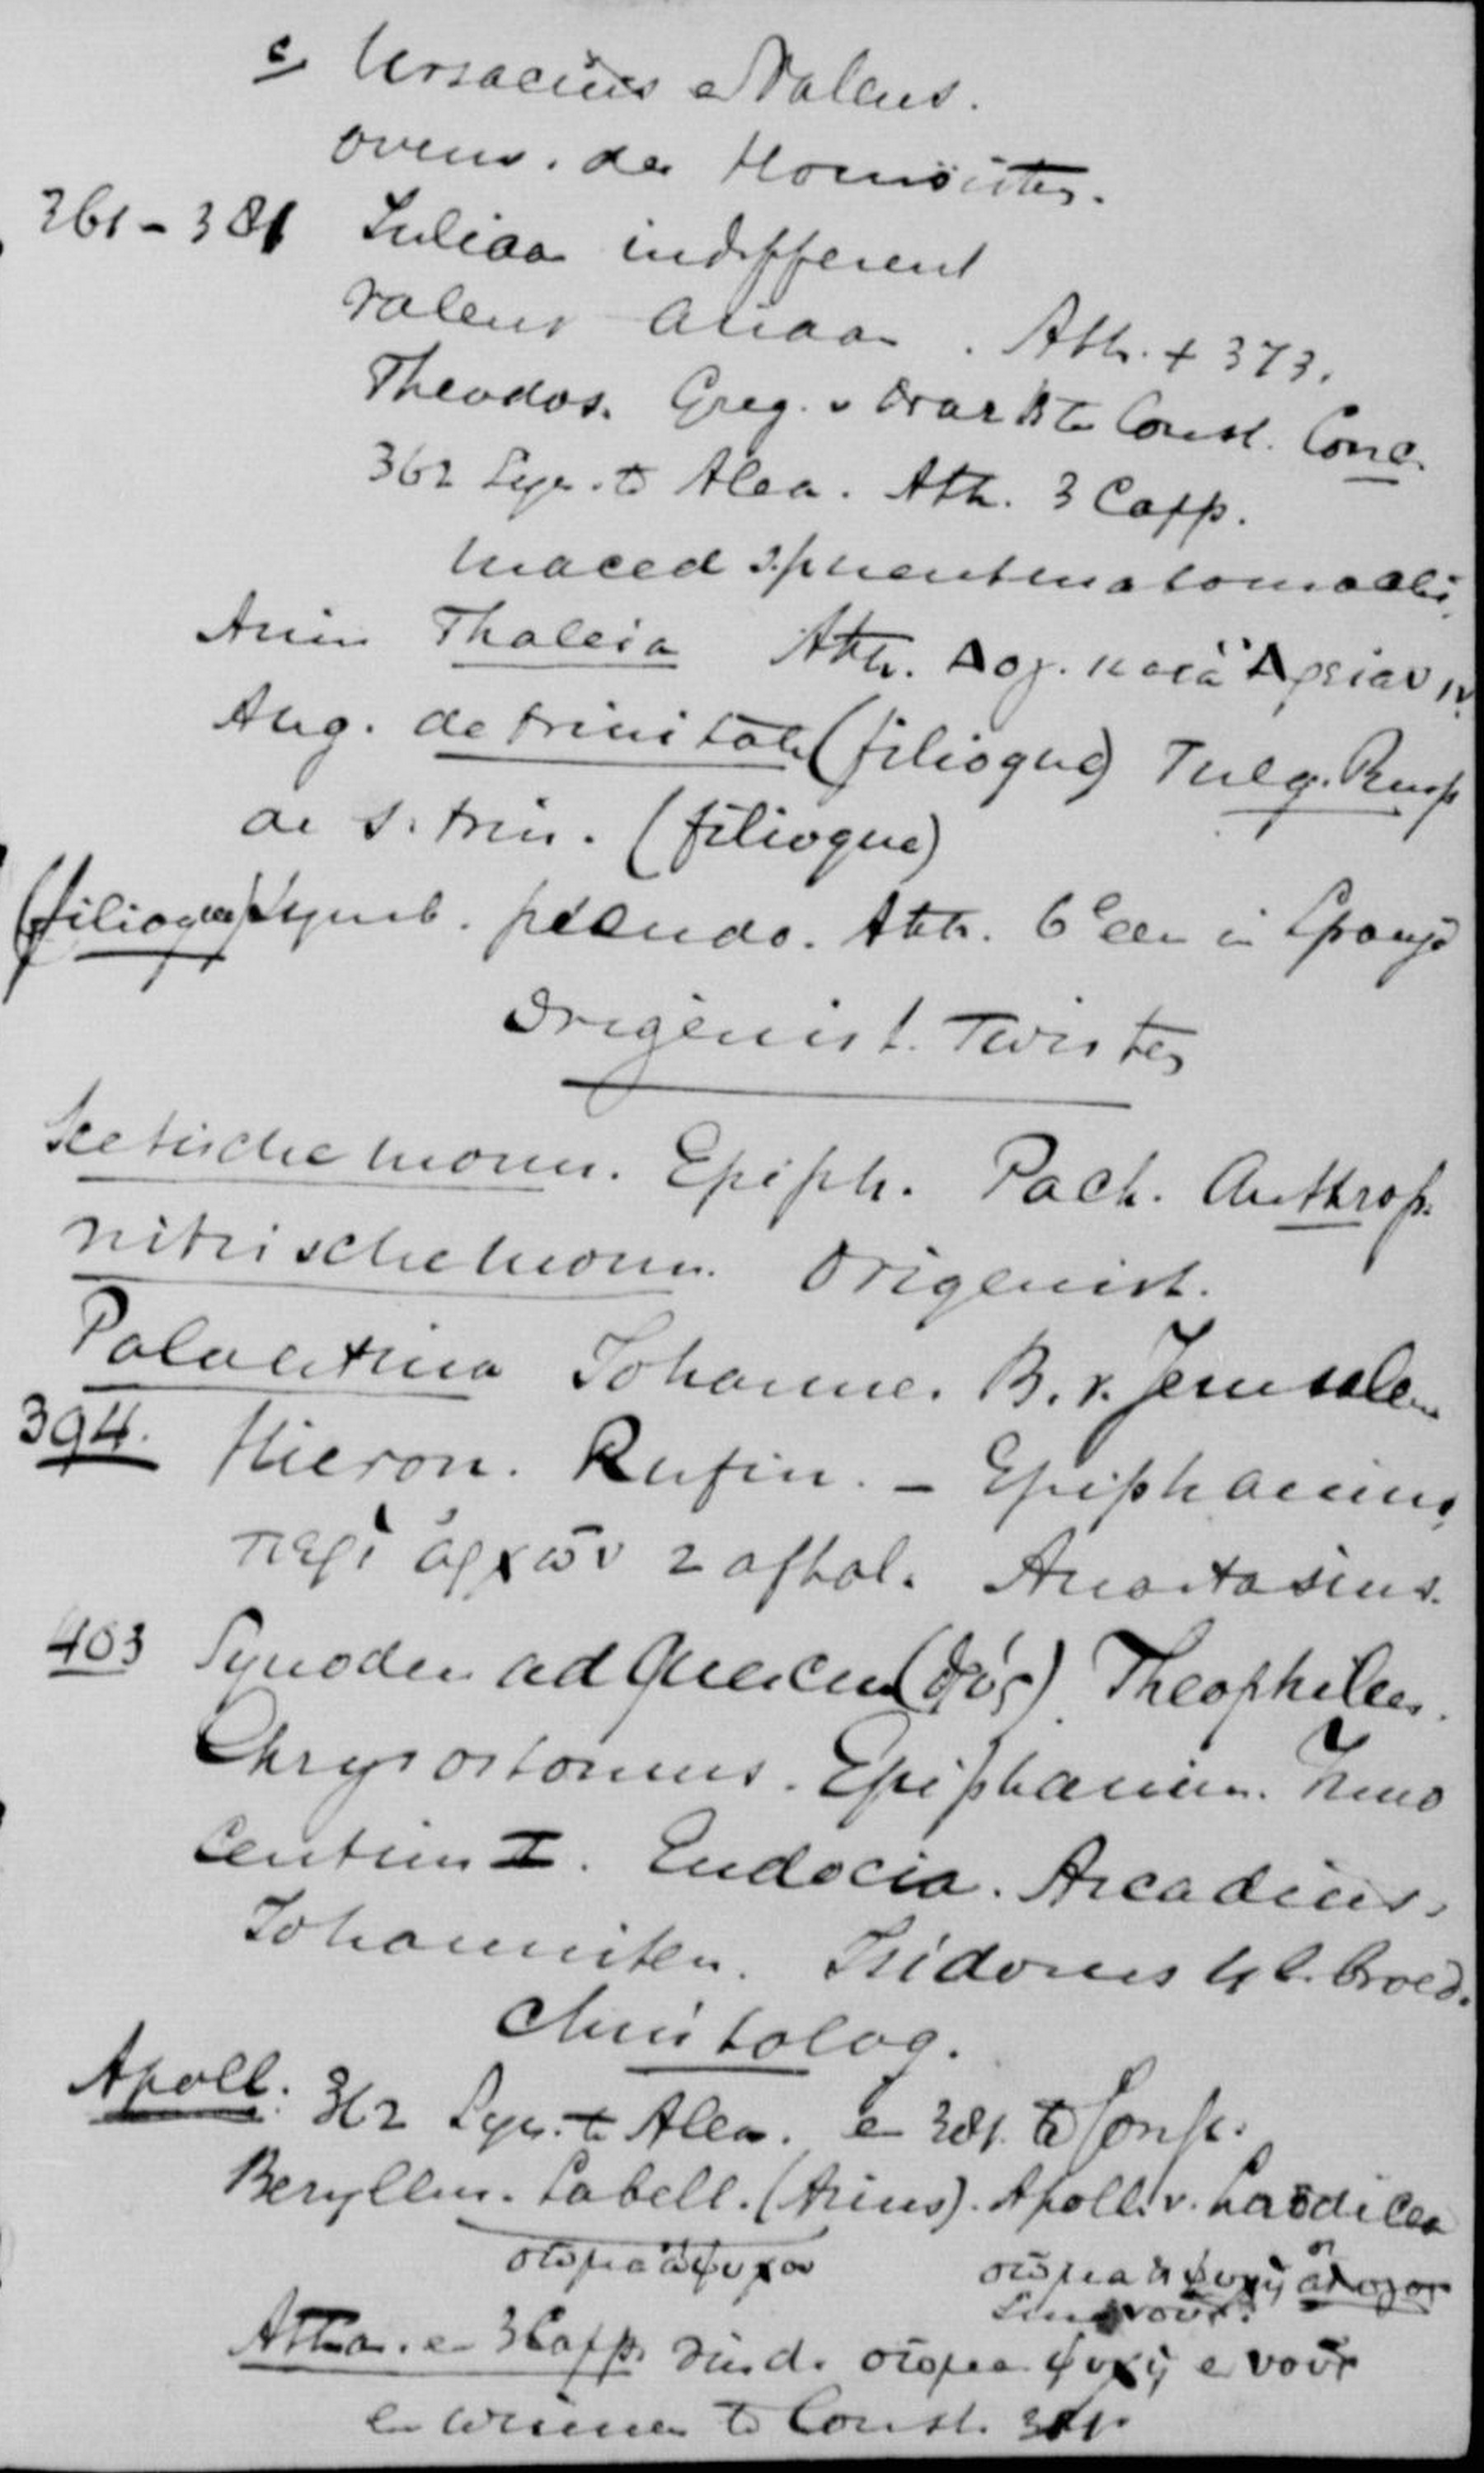 c, Ursacius e Valens.
overw. der Homoïsten.
361 - 381 Juliaan indifferent
Valens Ariaan. Ath. + 373.
Theodos. Greg. v Const. Conc.
362 Syn. te Alex. Ath. 3 Capp.
Maced Pneumatomachi.
Arius Thalia Ath. Λογ. κατὰ Ἀρειαν IV
Aug. de trinitate (filioque) Fulg. Rusp
de s. trin. (filioque)
(filioque) Symb. pseudo. Ath. 6e eeu in Spanje
Origenist. Twisten
Scetische monn. Epiph. Pach. Anthrop.
nitrische monn. Origenist.
Palaestina Johannes B. v. Jerusalem
394. Hieron. Rufin. - Epiphanius,
περὶ ἀρχῶν 2 afhal. Anastasius.
403 Synode ad Quercum (δρῦς) Theophilus.
Chrysostomus. Epiphanius. Inno
centius I. Eudocia. Arcadius.
Johanniten. Isidorus 4 l. broed.
Christolog.
Apoll. 362 Syn. te Alex. e 381. te Const.
Beryllus. Sabell. (Arius). Apoll. v. Laodicea
σῶμα ἄψυχον σῶμα ψυχὴ ἄλογον
νοῦς.
Athan. e 3 Capp. vind. σῶμα ψυχὴ e νοῦς
en winnen te Const. 381.